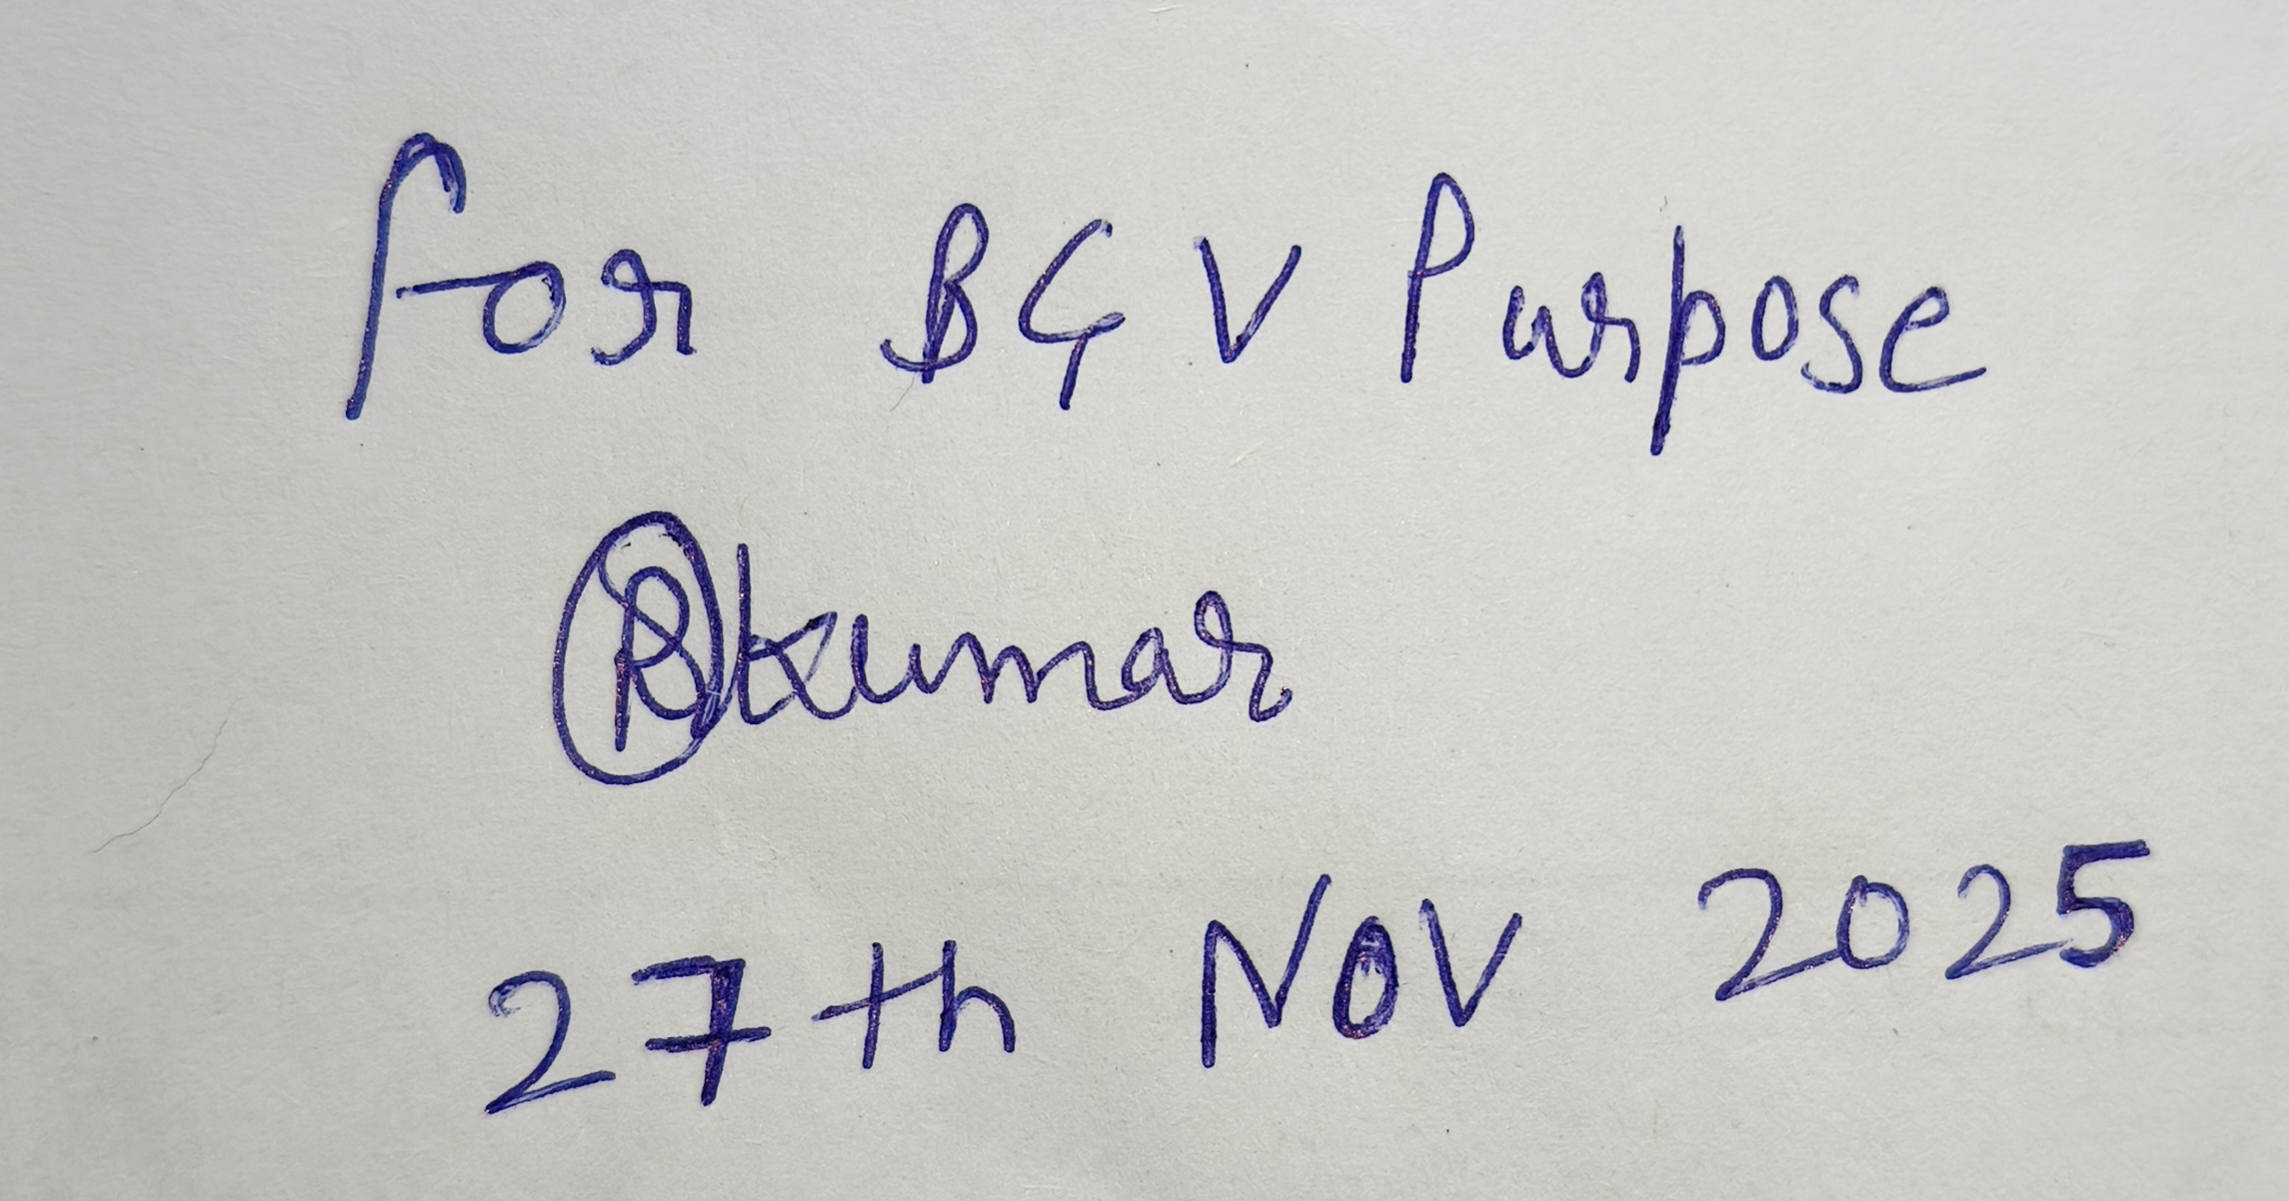 for BGV Purpose
Rkumar
27th NOV 2025